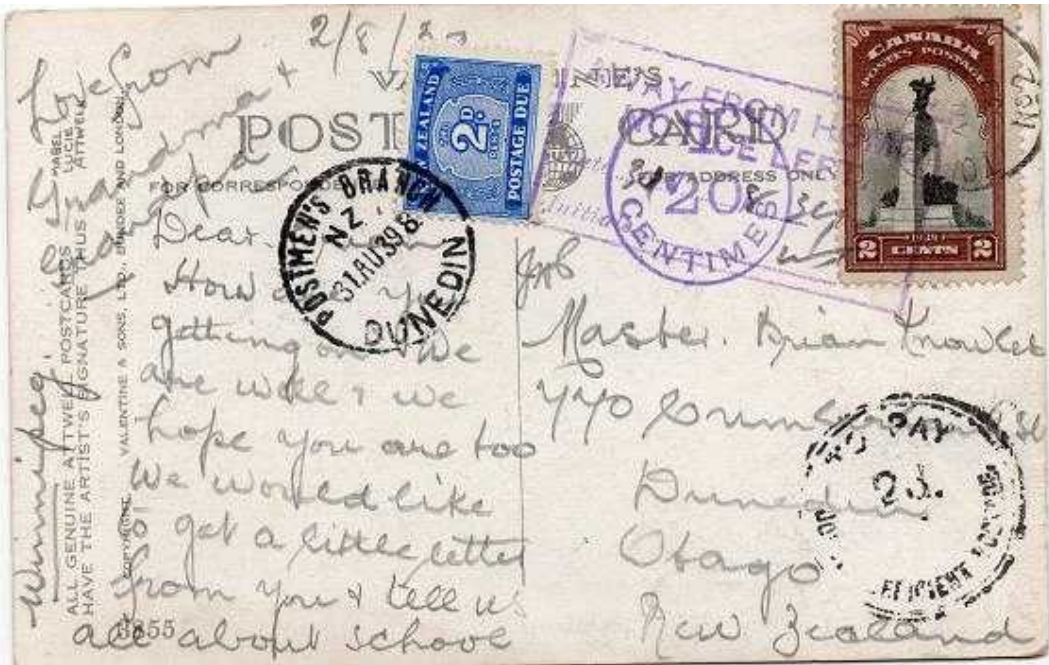 2/8/
Love from
Grandma +
Grandpa
Winnipeg
VALENTINE'S
POST CARD
FOR CORRESPONDENCE
FOR ADDRESS ONLY
ALL GENUINE ATTWELL POSTCARDS
HAVE THE ARTIST'S SIGNATURE THUS
MABEL
LUCIE
ATTWELL
COPYRIGHT. VALENTINE & SONS, LTD. DUNDEE AND LONDON.
NEW ZEALAND
2D
POSTAGE DUE
POSTMEN'S BRANCH
N.Z.
31 AU 39 8
DUNEDIN
AWAY FROM
T
20
CENTIMES
CANADA
POSTES POSTAGE
1939
2 CENTS 2
Dear
How are you
getting on. We
are well & we
hope you are too
We would like
to get a little letter
from you & tell us
all about school
Master. Brian Knowles
770 St
Dunedin
Otago
New Zealand
TO PAY
2d.
3855